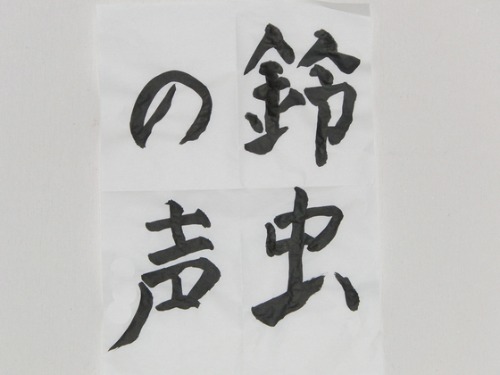 鈴虫
の声